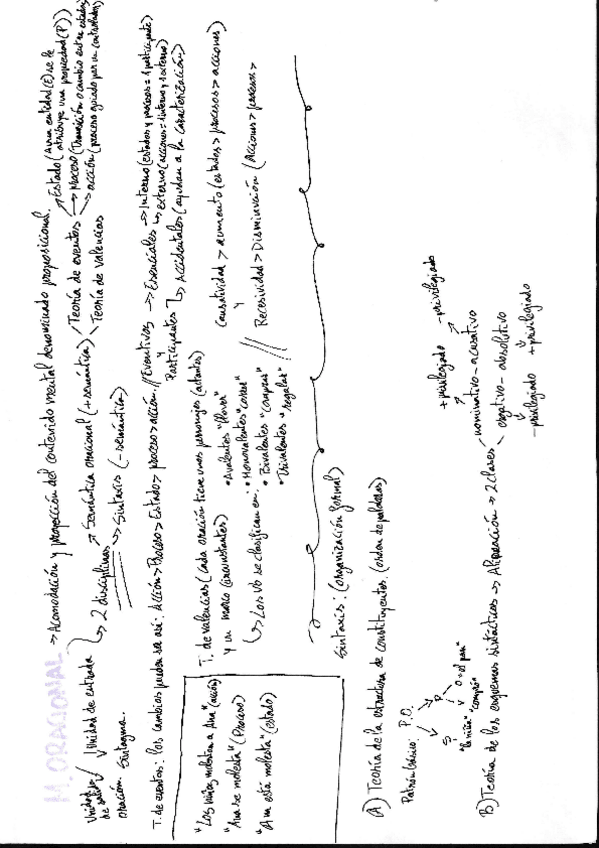 M. ORACIONAL → Acomodación y proyección del contenido mental denominado proposicional.
Unidad de salida Unidad de entrada
oración. Sintagma.
→ 2 disciplinas
→ Semántica oracional (+ semántica)
→ Sintaxis (- semántica)
Teoría de eventos
Teoría de valencias
→ Estado (A una entidad (E) se le atribuye una propiedad (P))
→ proceso (Transición o cambio entre estados)
→ acción (proceso guiado por un controlador)
T. de eventos: los cambios pueden ser así: Acción > Proceso > Estado > proceso > acción. // Eventivos
y
Participantes
→ Esenciales → Interno (estados y procesos = 1 participante)
→ externo (acciones = 1 interno y 1 externo)
→ Accidentales (ayudan a la caracterización)
"Los niños molestan a Ana" (acción)
"Ana se molesta" (Proceso)
"Ana está molesta" (estado)
T. de valencias (cada oración tiene unos personajes (actantes)
y un marco (circunstantes)
→ Los vb se clasifican en:
• Avalentes "llover"
• Monovalentes "correr"
• Bivalentes "comprar"
• Trivalentes "regalar"
Causatividad > aumento (estados > procesos > acciones)
y
Recesividad > Disminución (Acciones > procesos >
Sintaxis: (organización formal)
A) Teoría de la estructura de constituyentes. (orden de palabras)
Patrón básico: P.O.
S P O "el pan"
"la niña" "compró"
B) Teoría de los esquemas sintácticos → Alineación → 2 clases
+ privilegiado - privilegiado
nominativo - acusativo
ergativo - absolutivo
- privilegiado + privilegiado